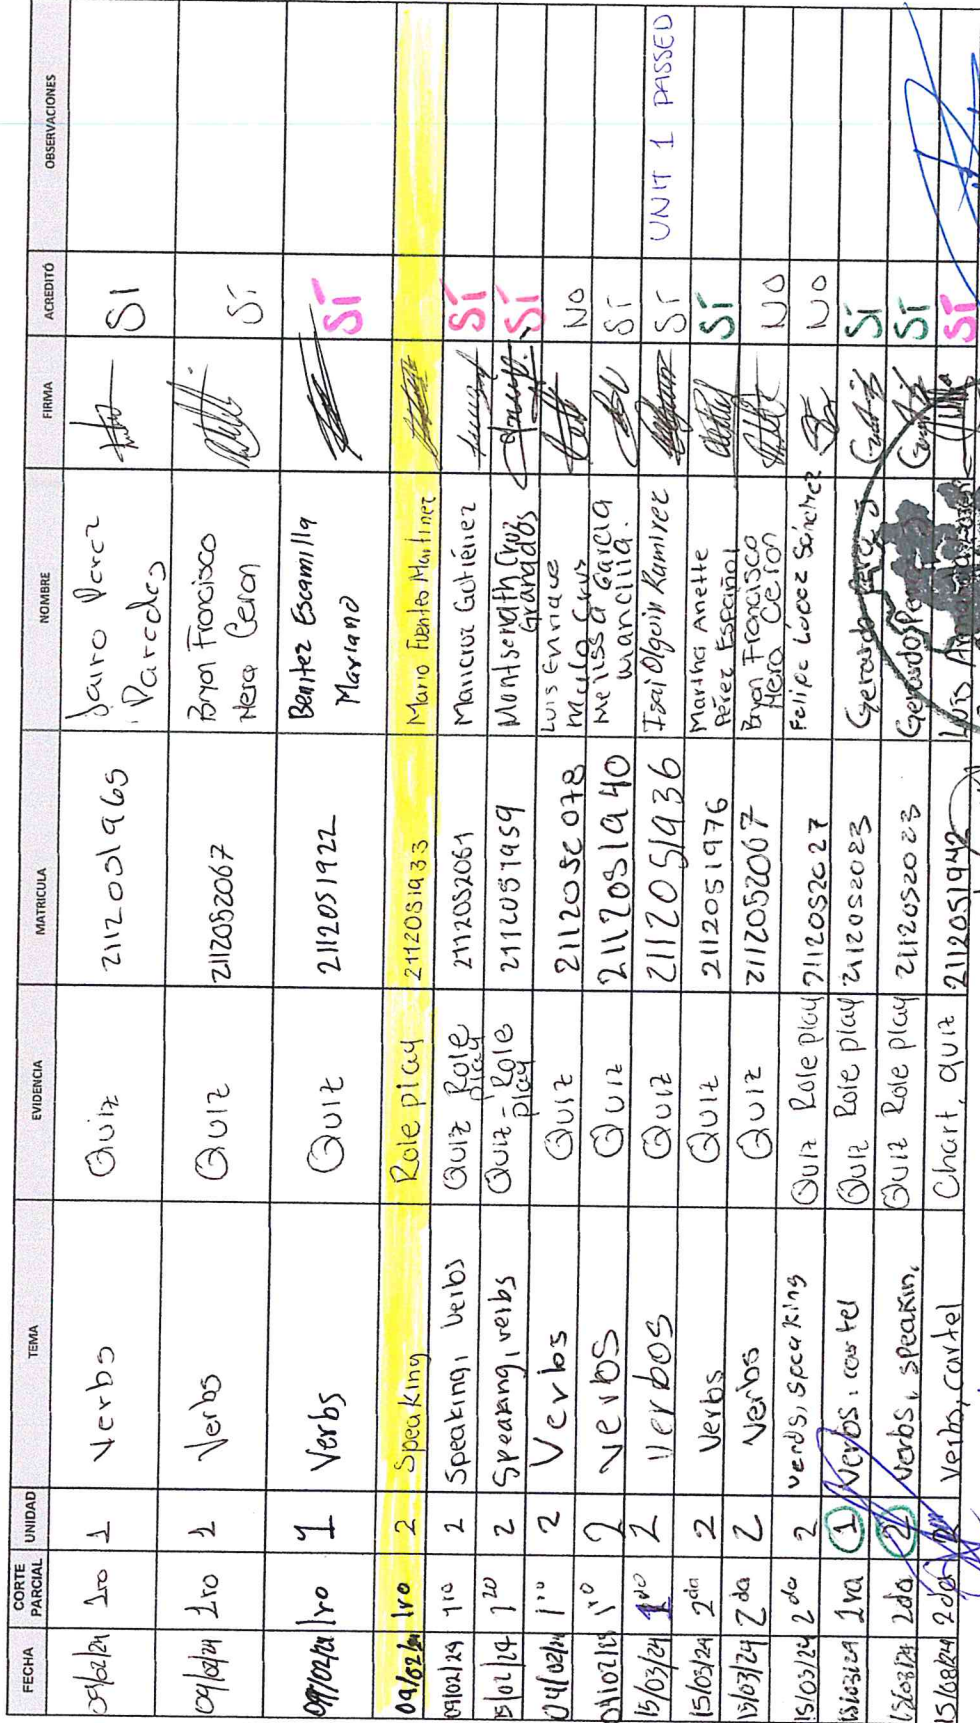 FECHA CORTE PARCIAL UNIDAD TEMA EVIDENCIA MATRICULA NOMBRE FIRMA ACREDITÓ OBSERVACIONES
09/02/24 1ro 1 Verbs Quiz 2112051965 Jairo Perez Paredes SI
09/02/24 1ro 1 Verbs Quiz 2112052067 Bryon Francisco Nera Ceron Sí
09/02/24 1ro 1 Verbs Quiz 2112051922 Benitez Escamilla Mariano Sí
09/02/24 1ro 2 Speaking Role play 2112051933 Mario Fuentes Martinez
09/02/24 1ro 2 Speaking, verbs Quiz Role play 2112052061 Maricruz Gutiérrez Sí
15/02/24 1ro 2 Speaking, verbs Quiz - Role play 2112051959 Montserrath Cruz Granados Sí
09/02/24 1ro 2 Verbs Quiz 211205 078 Luis Enrique Cruz NO
09/02/24 1ro 2 verbs Quiz 2112051940 Melissa Garcia Mancilla. Sí
15/03/24 2 Verbos Quiz 2112051936 Isai Olguin Ramirez Sí UNIT 1 PASSED
15/03/24 2da 2 Verbs Quiz 2112051976 Martha Anette Pérez Español Sí
15/03/24 2da 2 Verbs Quiz 2112052067 Bryan Francisco Nera Ceron NO
15/03/24 2da 2 verbs, speaking Quiz Role play 2112052027 Felipe López Sánchez NO
15/03/24 1ra 1 Verbs, cartel Quiz Role play 2112052023 Gerardo Sí
15/03/24 2da 2 Verbs, speakin, Quiz Role play 2112052023 Gerardo Sí
15/03/24 2da Verbs, cartel Chart, quiz 2112051942 Luis Sí